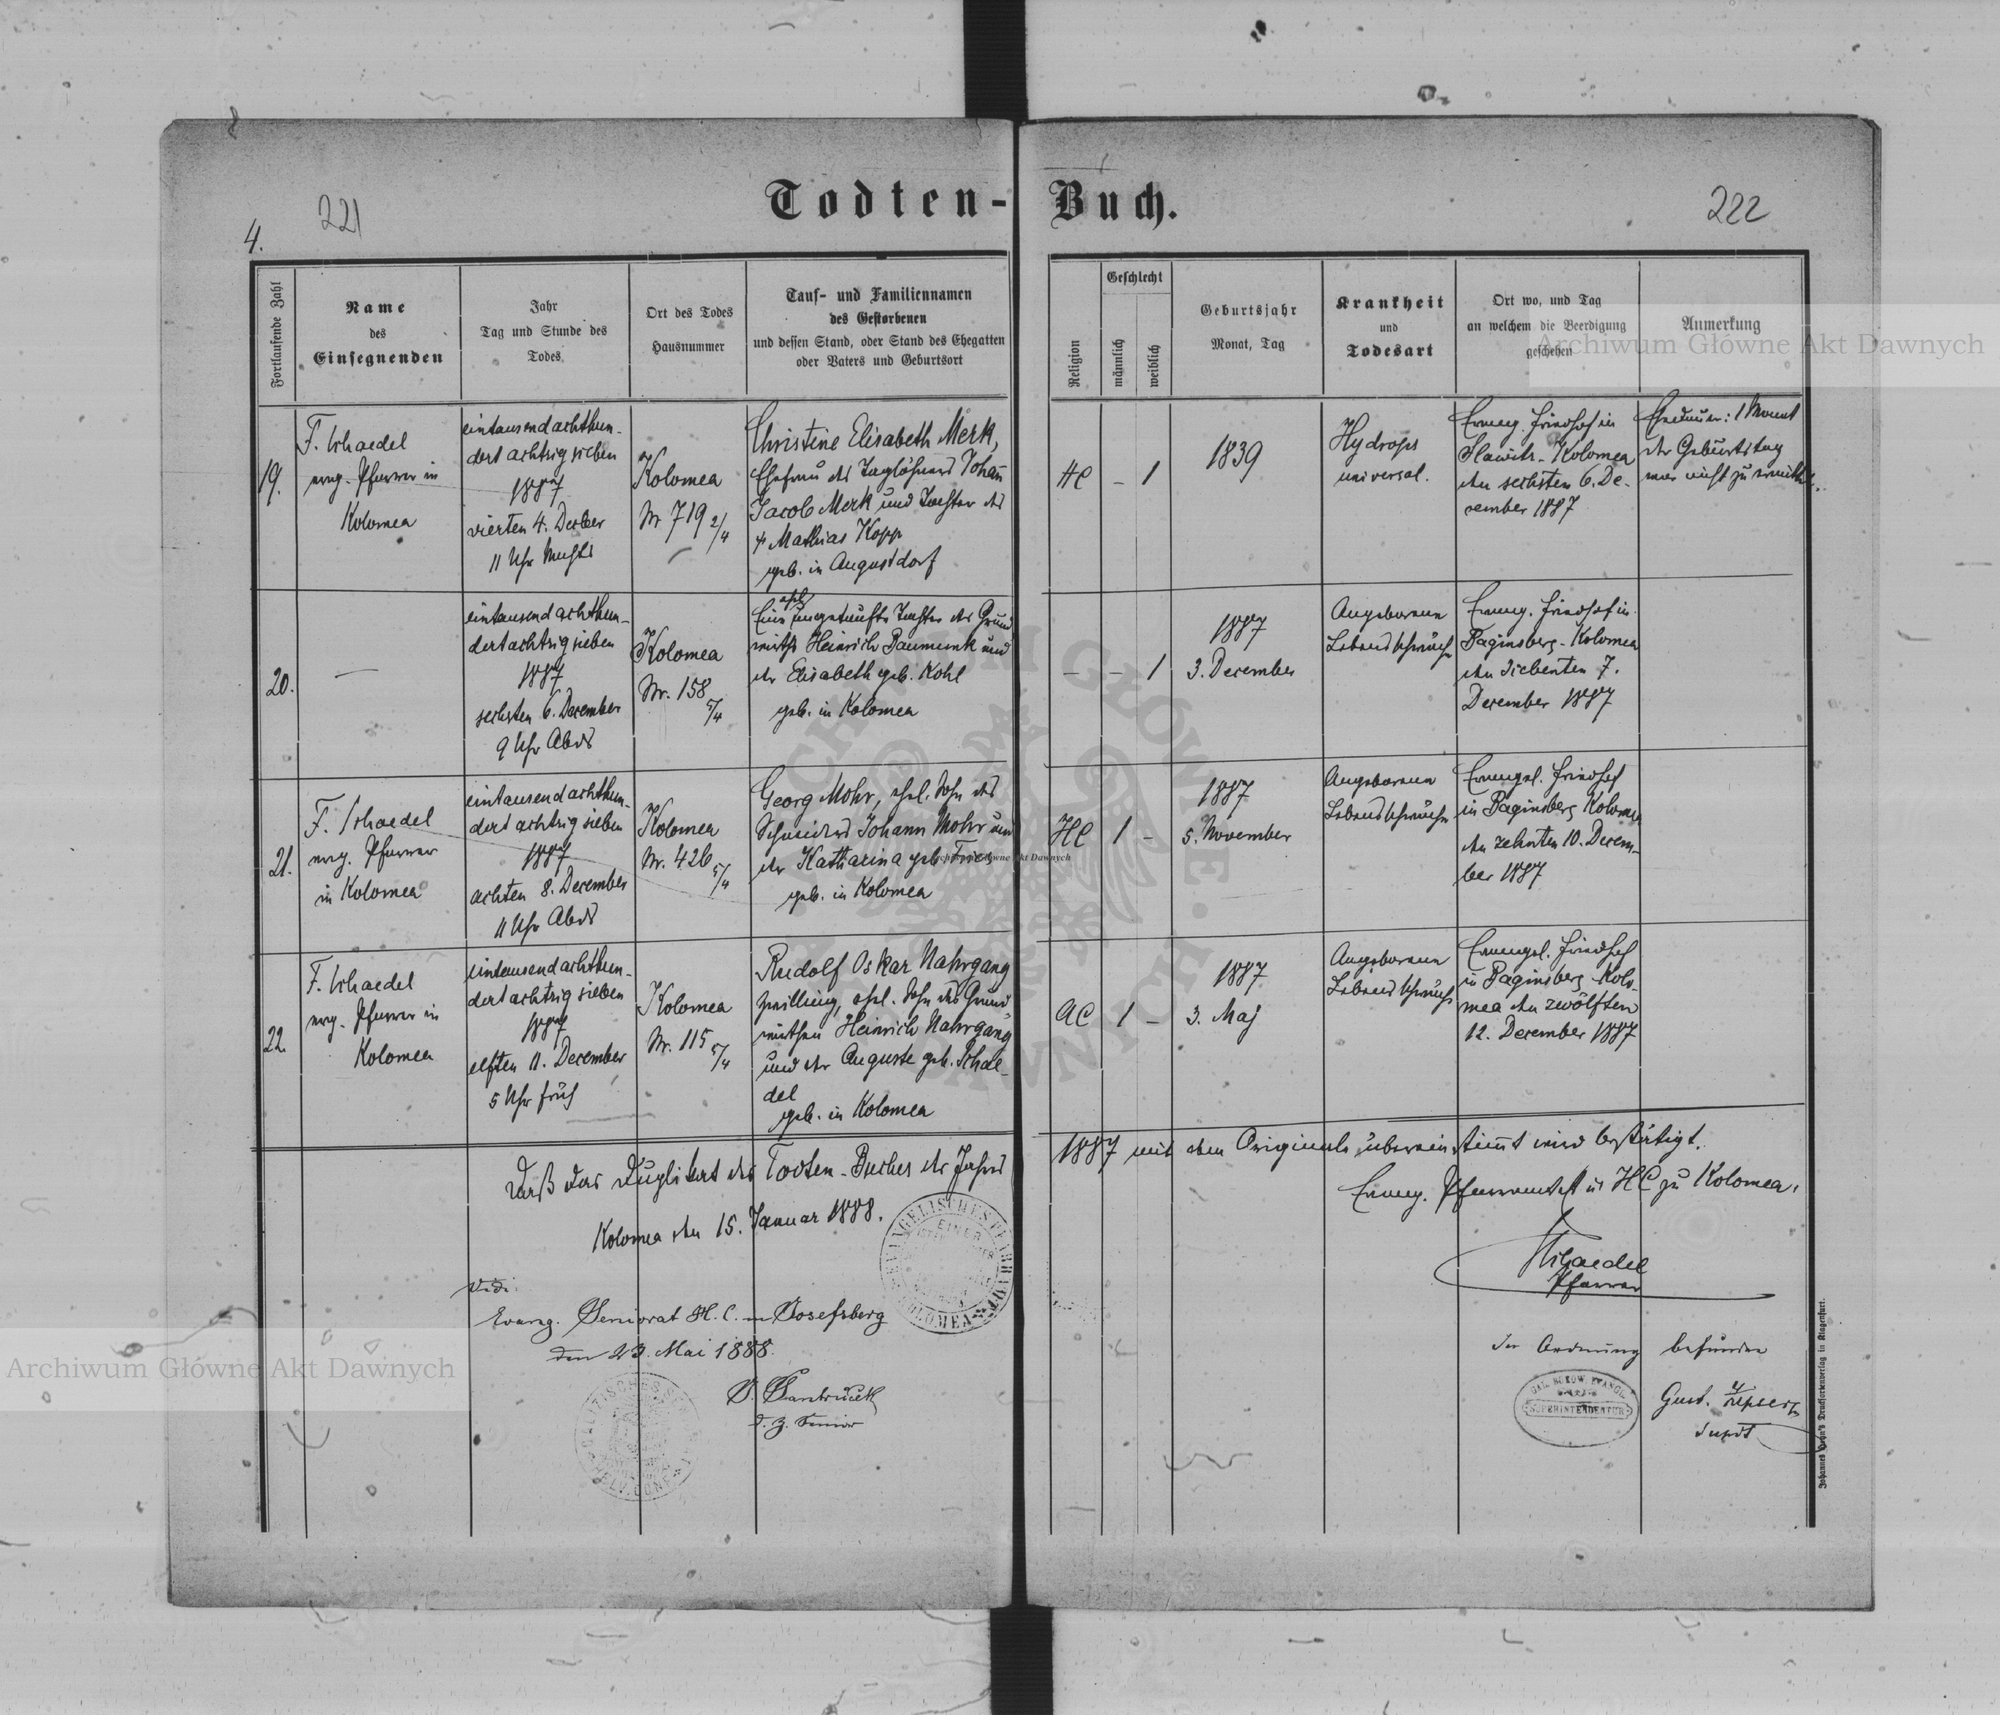 Todten-Buch.
221
222
4.
Fortlaufende Zahl
Name
des
Einsegnenden
Jahr
Tag und Stunde des
Todes
Ort des Todes
Hausnummer
Tauf- und Familiennamen
des Gestorbenen
und dessen Stand, oder Stand des Ehegatten
oder Vaters und Geburtsort
Religion
Geschlecht
männlich
weiblich
Geburtsjahr
Monat, Tag
Krankheit
und
Todesart
Ort wo, und Tag
an welchem die Beerdigung
geschehen
Anmerkung
19.
F. Schaedel
evng. Pfarrer in
Kolomea
eintausendachthun-
dertachtzigsieben
1887
vierten 4. Decber
11 Uhr Nachts
Kolomea
Nr 719 2/4
Christine Elisabeth Merk,
Ehefrau des Taglöhners Johan
Jacob Merk und Tochter des
Mathias Kopp
geb. in Augustdorf
HC
-
1
1839
Hydrops
universal.
Evang. Friedhof in
Slawitz-Kolomea
den sechsten 6. De-
cember 1887
Ehedauer: 1 Monat
der Geburtstag
war nicht zu ermitteln.
20.
—
eintausendachthun-
dertachtzigsieben
1887
sechsten 6. December
9 Uhr Abds
Kolomea
Nr. 158 5/4
ehel.
Eine ungetaufte Tochter des Grund
wirths Heinrich Daumunk und
der Elisabeth geb. Kohl
geb. in Kolomea
-
-
1
1887
3. December
Angeborene
Lebensschwäche
Evang. Friedhof in
Baginsberg-Kolomea
den siebenten 7.
December 1887
21.
F. Schaedel
evng. Pfarrer
in Kolomea
eintausendachthun-
dertachtzigsieben
1887
achten 8. December
11 Uhr Abds
Kolomea
Nr. 426 5/4
Georg Mohr, ehel. Sohn des
Schneiders Johann Mohr und
der Katharina geb. Fries
geb. in Kolomea
HC
1
-
1887
5. November
Angeborene
Lebensschwäche
Evangel. Friedhof
in Baginsberg Kolomea
den zehnten 10. Decem-
ber 1887
22.
F. Schaedel
evng. Pfarrer in
Kolomea
eintausendachthun-
dertachtzigsieben
1887
elften 11. December
5 Uhr früh
Kolomea
Nr. 115 5/4
Rudolf Oskar Nahrgang
Zwilling, ehel. Sohn des Grund
wirthen Heinrich Nahrgang
und der Auguste geb. Schae-
del
geb. in Kolomea
AC
1
-
1887
3. Maj
Angeborene
Lebensschwäche
Evangel. Friedhof
in Baginsberg-Kolo-
mea den zwölften
12. December 1887
Daß das Duplikat des Todten-Buches des Jahres 1887 mit dem Originale übereinstimmt wird bestätigt.
Evang. Pfarramt HC zu Kolomea.
Kolomea den 15. Januar 1888.
Schaedel
Pfarrer
Vidi.
Evang. Seniorat H. C. in Josefsberg
den 23. Mai 1888.
d. Z. Senior
In Ordnung befunden
SUPERINTENDENTUR
Supdt
Archiwum Główne Akt Dawnych
Archiwum Główne Akt Dawnych
Archiwum Główne Akt Dawnych